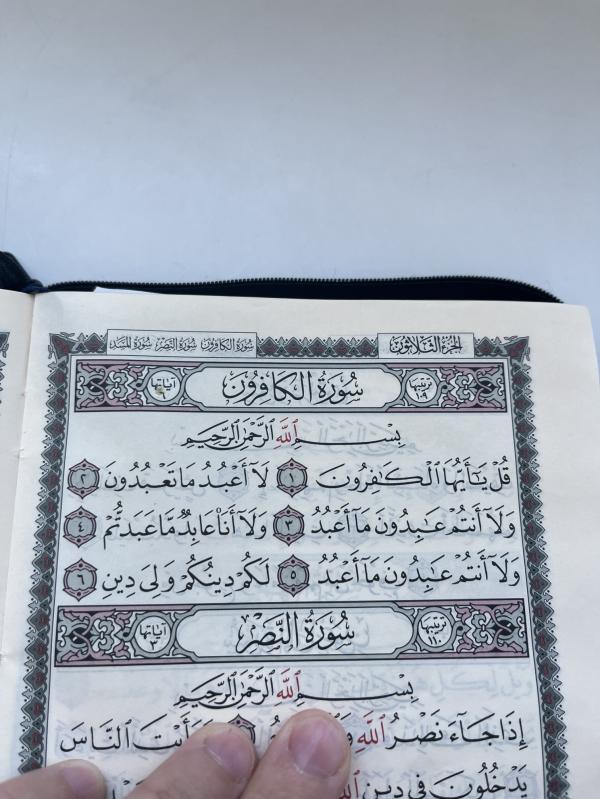 الجزء الثلاثون سورة الكافرون سورة النصر سورة المسد
ترتيبها ١٠٩ سُورَةُ الكَافِرُونَ آياتها ٦
بِسْمِ ٱللَّهِ ٱلرَّحْمَٰنِ ٱلرَّحِيمِ
قُلْ يَـٰٓأَيُّهَا ٱلْكَـٰفِرُونَ ١ لَآ أَعْبُدُ مَا تَعْبُدُونَ ٢
وَلَآ أَنتُمْ عَـٰبِدُونَ مَآ أَعْبُدُ ٣ وَلَآ أَنَا۠ عَابِدٌ مَّا عَبَدتُّمْ ٤
وَلَآ أَنتُمْ عَـٰبِدُونَ مَآ أَعْبُدُ ٥ لَكُمْ دِينُكُمْ وَلِىَ دِينِ ٦
ترتيبها ١١٠ سُورَةُ النَّصْرِ آياتها ٣
بِسْمِ ٱللَّهِ ٱلرَّحْمَٰنِ ٱلرَّحِيمِ
إِذَا جَآءَ نَصْرُ ٱللَّهِ ٱلنَّاسَ
يَدْخُلُونَ فِى دِينِ ٱللَّهِ